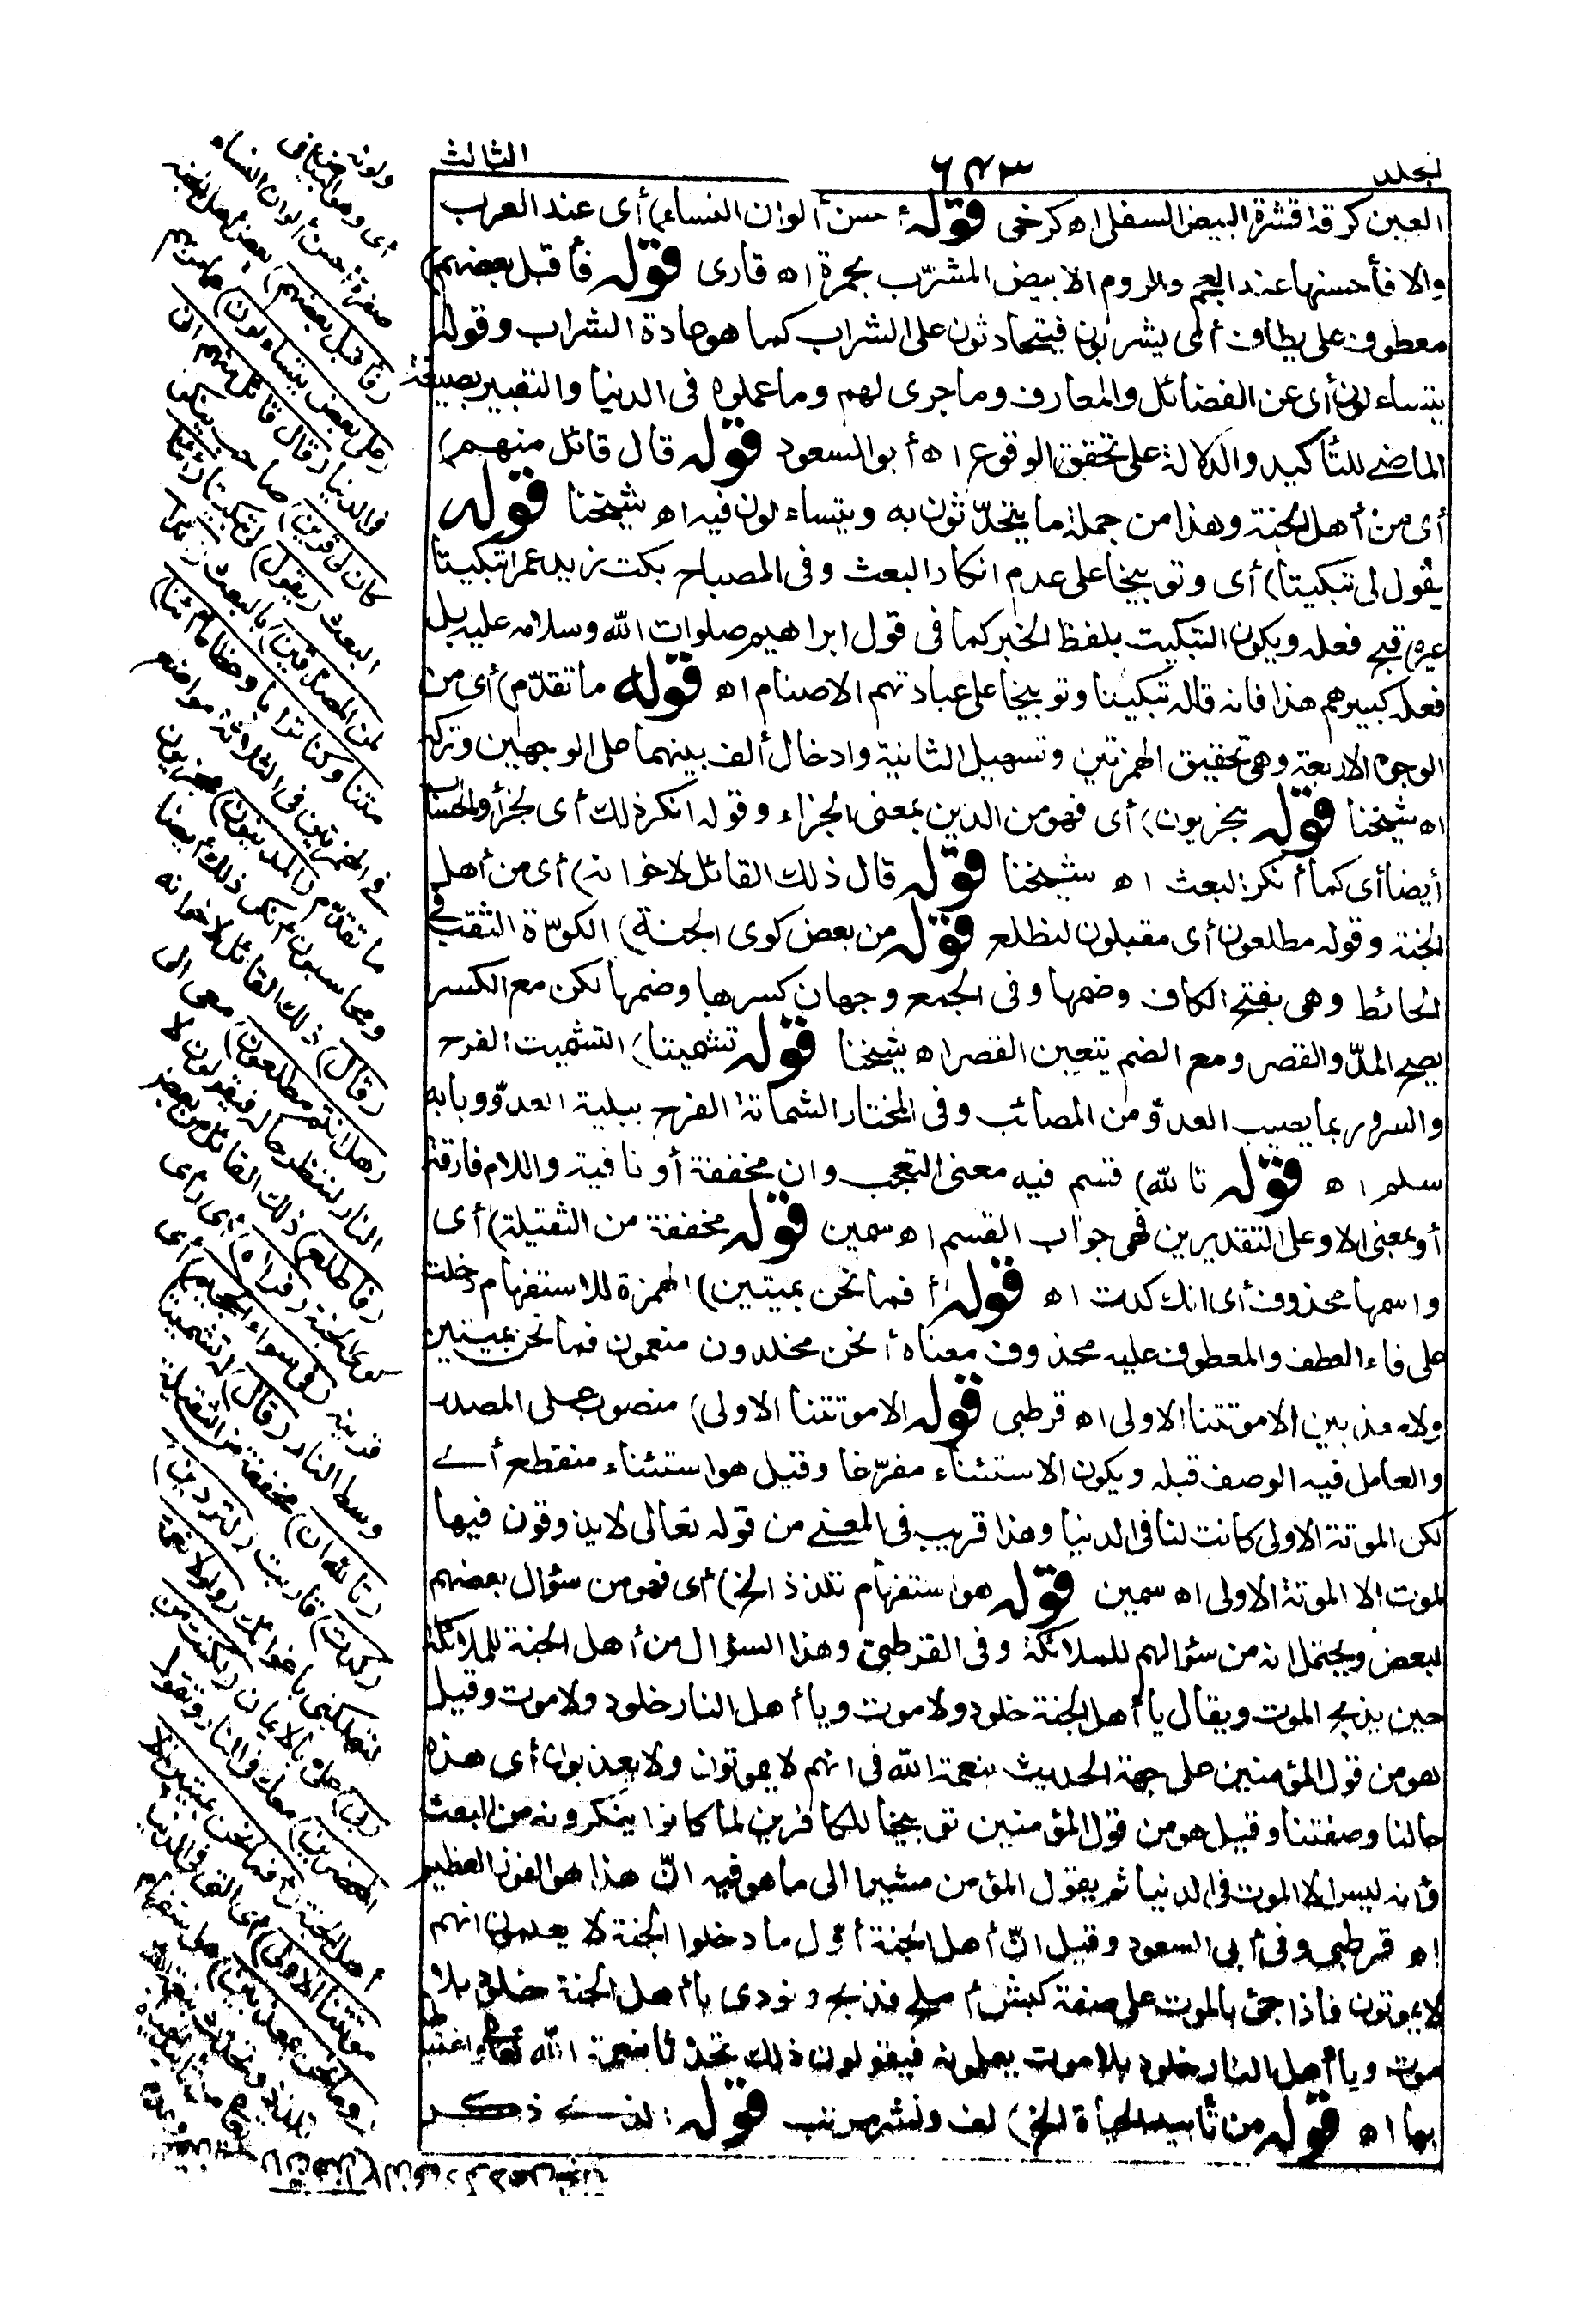 الثالث
٦٤٣
لجلد
العين كرقة قشرة البيض السفلى اه كرخى قوله أحسن ألوان النساء) أى عند العرب
والا فأحسنها عند العجم والروم الابيض المشرّب بحمرة اه قارى قوله فأقبل بعضهم)
معطوف على يطاف أى يشربون فيتحادثون على الشراب كما هو عادة الشراب وقوله
يتساءلون أى عن الفضائل والمعارف وما جرى لهم وما عملوه فى الدنيا والتعبير بصيغة
الماضى للتأكيد والدلالة على تحقق الوقوع اه أبو السعود قوله قال قائل منهم)
أى من أهل الجنة وهذا من جملة ما يتحدّثون به ويتساءلون فيه اه شيخنا قوله
يقول لى تبكيتا) أى وتوبيخا على عدم انكار البعث وفى المصباح بكت زيد عمرا تبكيتا
عيره قبح فعله ويكون التبكيت بلفظ الخبر كما فى قول ابراهيم صلوات الله وسلامه عليه بل
فعله كبيرهم هذا فانه قاله تبكيتا وتوبيخا على عبادتهم الاصنام اه قوله ما تقدّم) أى من
الوجوه الاربعة وهى تحقيق الهمزتين وتسهيل الثانية وادخال ألف بينهما على الوجهين وتركه
اه شيخنا قوله مجزيون) أى فهو من الدين بمعنى الجزاء وقوله انكر ذلك أى الجزاء والحساب
أيضا أى كما أنكر البعث اه شيخنا قوله قال ذلك القائل لاخوانه) أى من أهل
الجنة وقوله مطلعون أى مقبلون لنطلع قوله من بعض كوى الجنة) الكوّة الثقب فى
الحائط وهى بفتح الكاف وضمها وفى الجمع وجهان كسرها وضمها لكن مع الكسر
يصح المدّ والقصر ومع الضم يتعين القصر اه شيخنا قوله تشميتا) التشميت الفرح
والسرور بما يصيب العدوّ من المصائب وفى المختار الشماتة الفرح ببلية العدوّ وبابه
سلم اه قوله تا لله) قسم فيه معنى التعجب وان مخففة أو نافية واللام فارقة
أو بمعنى الا وعلى التقديرين فهى جواب القسم اه سمين قوله مخففة من الثقيلة) أى
واسمها محذوف أى انك كدت اه قوله أفما نحن بميتين) الهمزة للاستفهام دخلت
على فاء العطف والمعطوف عليه محذوف معناه أنحن مخلدون منعمون فما نحن بميتين
ولا معذبين الا موتتنا الاولى اه قرطبى قوله الا موتتنا الاولى) منصوب على المصدر
والعامل فيه الوصف قبله ويكون الاستثناء مفرّغا وقيل هو استثناء منقطع أى
لكن الموتة الاولى كانت لنا فى الدنيا وهذا قريب فى المعنى من قوله تعالى لا يذوقون فيها
الموت الا الموتة الاولى اه سمين قوله هو استفهام تلذذ الخ) أى فهو من سؤال بعضهم
لبعض ويحتمل انه من سؤالهم للملائكة وفى القرطبى وهذا السؤال من أهل الجنة للملائكة
حين يذبح الموت ويقال يا أهل الجنة خلود ولا موت ويا أهل النار خلود ولا موت وقيل
هو من قول المؤمنين على جهة الحديث بنعمة الله فى انهم لا يموتون ولا يعذبون أى هذه
حالنا وصفتنا وقيل هو من قول المؤمنين توبيخا للكافرين لما كانوا ينكرونه من البعث
وأنه ليس الا الموت فى الدنيا ثم يقول المؤمن مشيرا الى ما هو فيه انّ هذا هو الفوز العظيم
اه قرطبى وفى أبى السعود وقيل انّ أهل الجنة أوّل ما دخلوا الجنة لا يعلمون انهم
لا يموتون فاذا جىء بالموت على صفة كبش أملح فذبح ونودى يا أهل الجنة خلود بلا
موت ويا أهل النار خلود بلا موت يعلمونه فيقولون ذلك تحدّثا بنعمة الله تعالى واغتباطا
بها اه قوله من تأبيد الحياة الخ) لف ونشر مرتب قوله الذى ذكر
ولونه
أى وهو البياض فى
صفرة أحسن ألوان النساء
(فأقبل بعضهم) بعض أهل الجنة
(على بعض يتساءلون) عما مر بهم
فى الدنيا (قال قائل منهم انى
كان لى قرين) صاحب ينكر
البعث (يقول) لى تبكيتا (أئنك
لمن المصدّقين) بالبعث (أئذا
متنا وكنا ترابا وعظاما أئنا)
فى الهمزتين فى الثلاثة مواضع
ما تقدّم (لمدينون) مجزيون
ومحاسبون أنكر ذلك أيضا
(قال) ذلك القائل لاخوانه
(هل أنتم مطلعون) معى الى
النار لننظر حاله فيقولون لا
(فاطلع) ذلك القائل من بعض
كوى الجنة (فرآه) أى رأى
قرينه (فى سواء الجحيم) أى
وسط النار (قال) له تشميتا
(تالله ان) مخففة من الثقيلة
(كدت) قاربت (لتردين)
لتهلكنى باغوائك (ولولا نعمة
ربى) على بالايمان (لكنت من
المحضرين) معك فى النار وتقول
أهل الجنة (أفما نحن بميتين الا
موتتنا الاولى) أى التى فى الدنيا
(وما نحن بمعذبين) هو استفهام